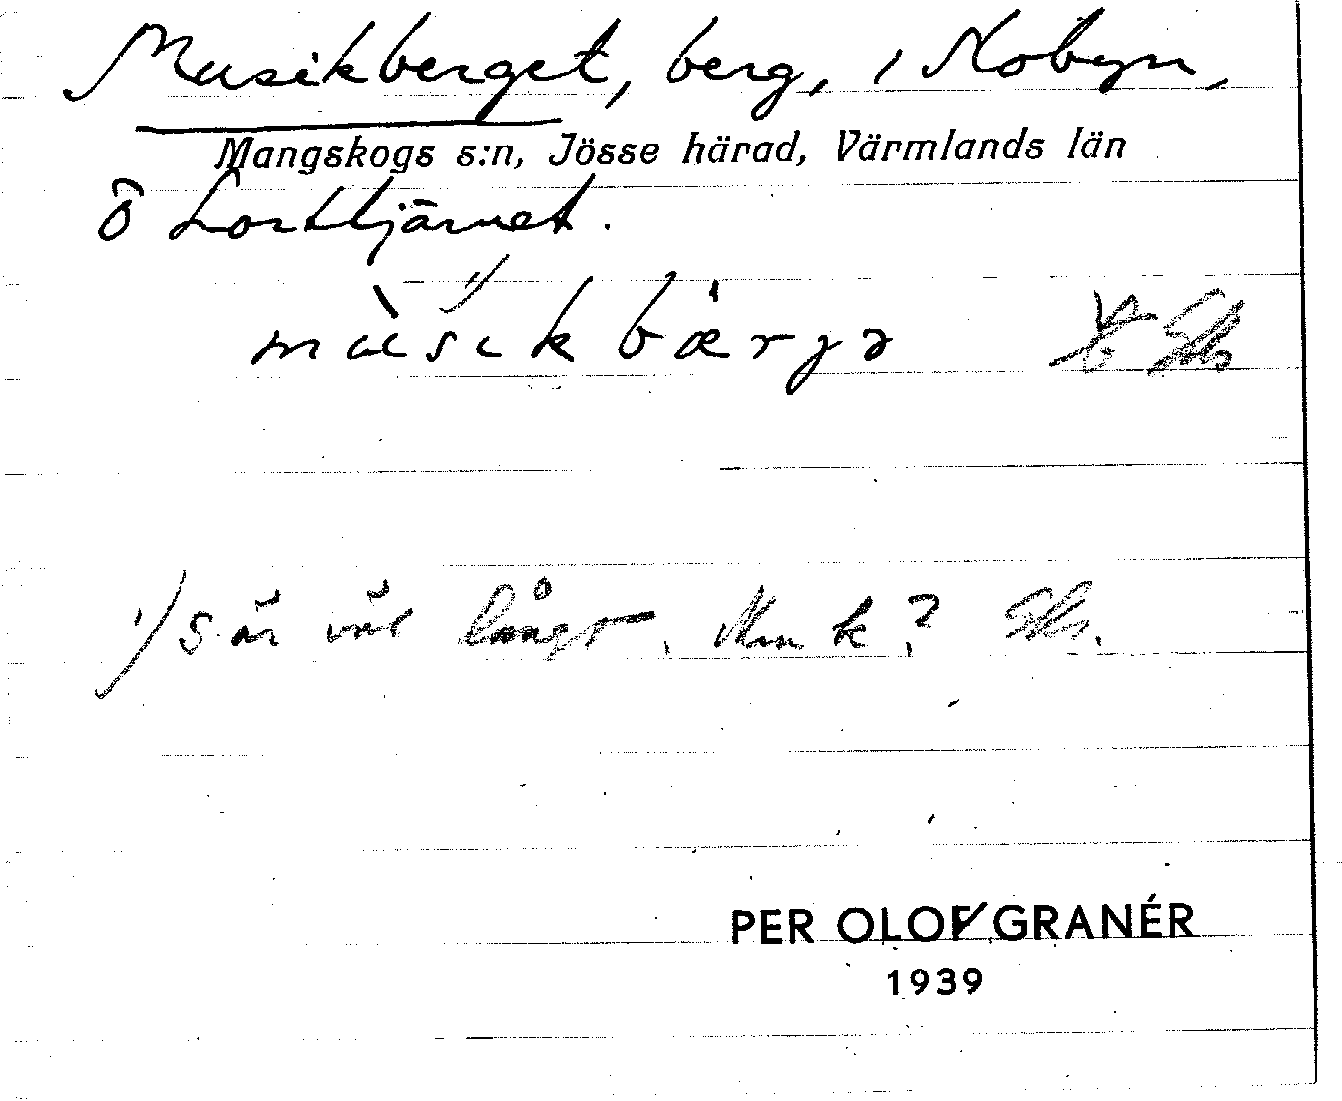 Musikberget, berg, i Nobyn,
Mangskogs s:n, Jösse härad, Värmlands län
ö Lorttjärnet.
mùsik bærjə
1)
1) s är väl långt. Mus k?
PER OLOF GRANÉR
1939